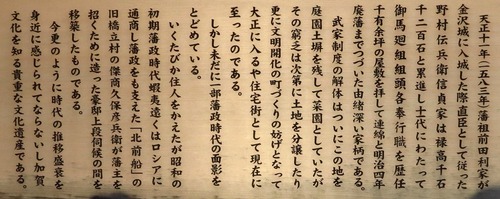 天正十一年(一五八三年)藩祖前田利家が
金沢城に入城した際直臣として従った
野村伝兵衛信貞家は禄高千石
千二百石と累進し十代にわたって
御馬廻組組頭各奉行職を歴任
千有余坪の屋敷を拝して連綿と明治四年
廃藩までつづいた由緒深い家柄である。
武家制度の解体はついにこの地を
庭園土塀を残して菜園としていたが
その窮乏は次第に土地を分譲したり
更に文明開化の町づくりの妨げとなって
大正に入るや住宅街として現在に
至ったのである。
しかし未だに一部藩政時代の面影を
とどめている。
いくたびか住人をかえたが昭和の
初期藩政時代蝦夷遠くはロシアに
通商の藩政をも支えた「北前船」の
旧橋立村の傑商久保彦兵衛が藩主を
招くために造った豪邸上段伺候の間を
移築したものである。
今更のように時代の推移盛衰を
身近に感じられてならないし加賀
文化を知る貴重な文化遺産である。